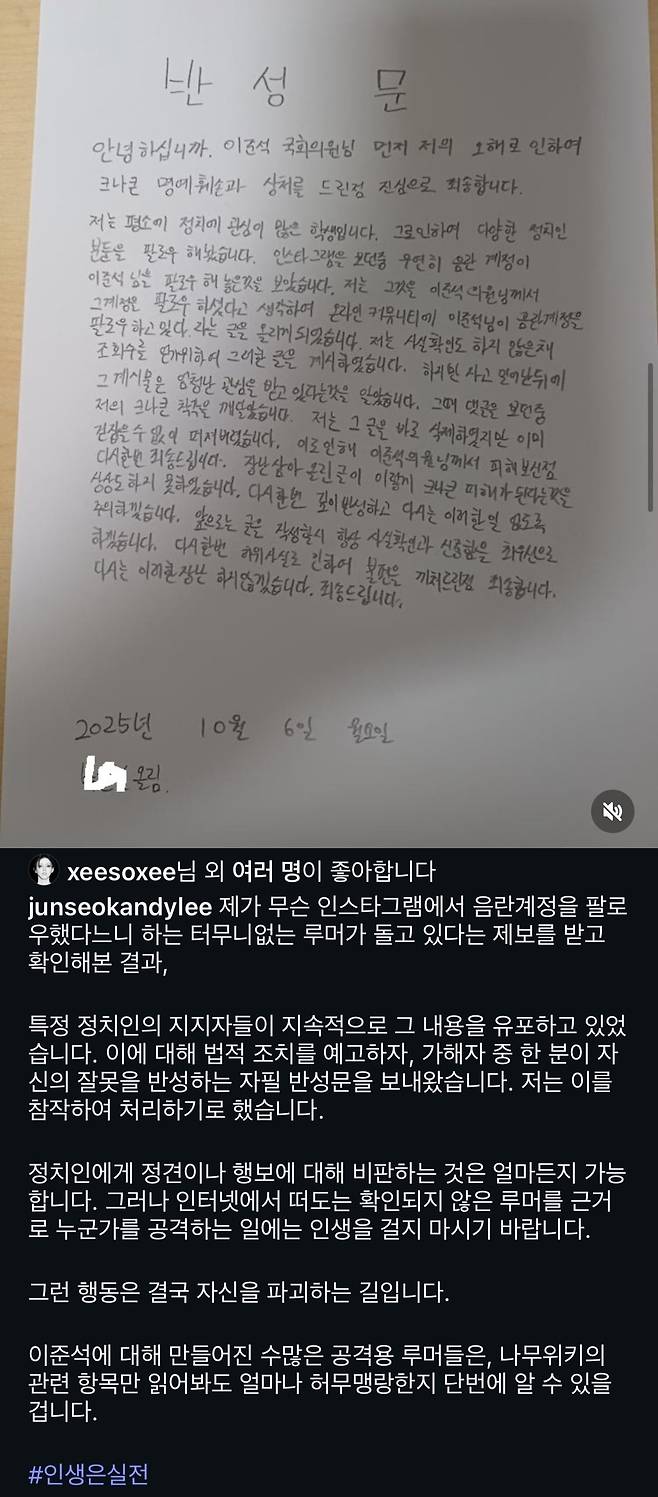 반 성 문
안녕하십니까. 이준석 국회의원님 먼저 저의 오해로 인하여
크나큰 명예훼손과 상처를 드린점 진심으로 죄송합니다.
저는 평소에 정치에 관심이 많은 학생입니다. 그로인하여 다양한 정치인
분들을 팔로우 해놨습니다. 인스타그램을 보던중 우연히 음란 계정이
이준석 님을 팔로우 해 놓은것을 보았습니다. 저는 그것을 이준석 의원님께서
그계정을 팔로우 하셨다고 생각하여 온라인 커뮤니티에 이준석님이 음란계정을
팔로우하고 있다. 라는 글을 올리게 되었습니다. 저는 사실확인도 하지 않은채
조회수를 얻기위하여 그러한 글을 게시하였습니다. 하지만 사고 일어난뒤에
그 게시물은 엄청난 관심을 받고 있다는것을 알았습니다. 그때 댓글을 보던중
저의 크나큰 착각을 깨달았습니다. 저는 그 글을 바로 삭제하였지만 이미
걷잡을수 없이 퍼져버렸습니다. 이로 인해 이준석의원님께서 피해보신점
다시한번 죄송드립니다. 장난삼아 올린글이 이렇게 크나큰 피해가 된다는것을
상상도 하지 못하였습니다. 다시한번 깊이반성하고 다시는 이러한일 없도록
주의하겠습니다. 앞으로는 글을 작성할시 항상 사실확인과 신중함을 최우선으로
하겠습니다. 다시한번 허위사실로 인하여 불편을 끼쳐드린점 죄송합니다.
다시는 이러한 장난 하지않겠습니다. 죄송드립니다.
2025년 10월 6일 월요일
올림.
xeesoxee님 외 여러 명이 좋아합니다
junseokandylee 제가 무슨 인스타그램에서 음란계정을 팔로
우했다느니 하는 터무니없는 루머가 돌고 있다는 제보를 받고
확인해본 결과,
특정 정치인의 지지자들이 지속적으로 그 내용을 유포하고 있었
습니다. 이에 대해 법적 조치를 예고하자, 가해자 중 한 분이 자
신의 잘못을 반성하는 자필 반성문을 보내왔습니다. 저는 이를
참작하여 처리하기로 했습니다.
정치인에게 정견이나 행보에 대해 비판하는 것은 얼마든지 가능
합니다. 그러나 인터넷에서 떠도는 확인되지 않은 루머를 근거
로 누군가를 공격하는 일에는 인생을 걸지 마시기 바랍니다.
그런 행동은 결국 자신을 파괴하는 길입니다.
이준석에 대해 만들어진 수많은 공격용 루머들은, 나무위키의
관련 항목만 읽어봐도 얼마나 허무맹랑한지 단번에 알 수 있을
겁니다.
#인생은실전